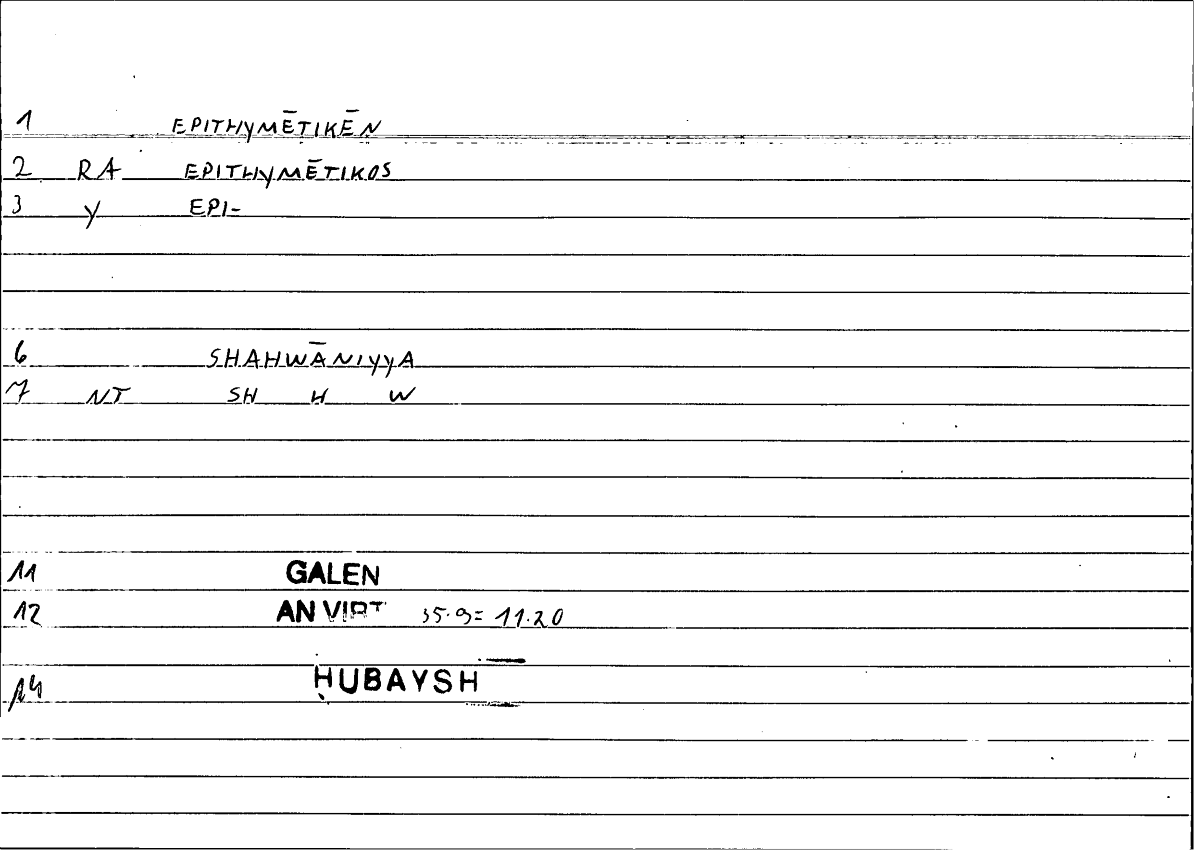 1 EPITHYMĒTIKĒN
2 RA EPITHYMĒTIKOS
3 Y EPI-
6 SHAHWĀNIYYA
7 NT SH H W
11 GALEN
12 AN VIRT 35.9= 11.20
14 ḤUBAYSH